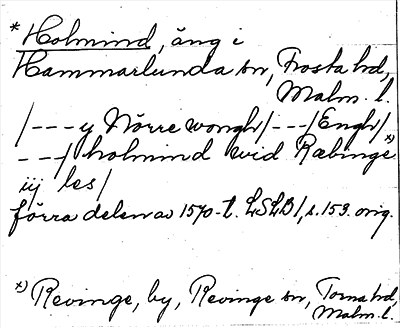 * Holmind, äng i
Hammarlunda sn, Frosta hd,
Malm. l.
/---y Nörre wongh/---/Engh/
---/ holmind vid Ræbinge x)
iij les/
förra delen av 1570-t. LSLB 1, s. 153. orig.
x) Revinge, by, Revinge sn, Torna hd,
Malm. l.